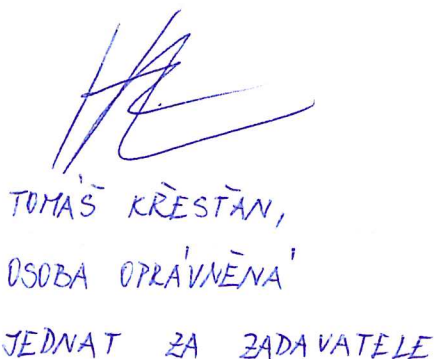 TOMÁŠ KŘESŤAN,
OSOBA OPRÁVNĚNÁ
JEDNAT ZA ZADAVATELE